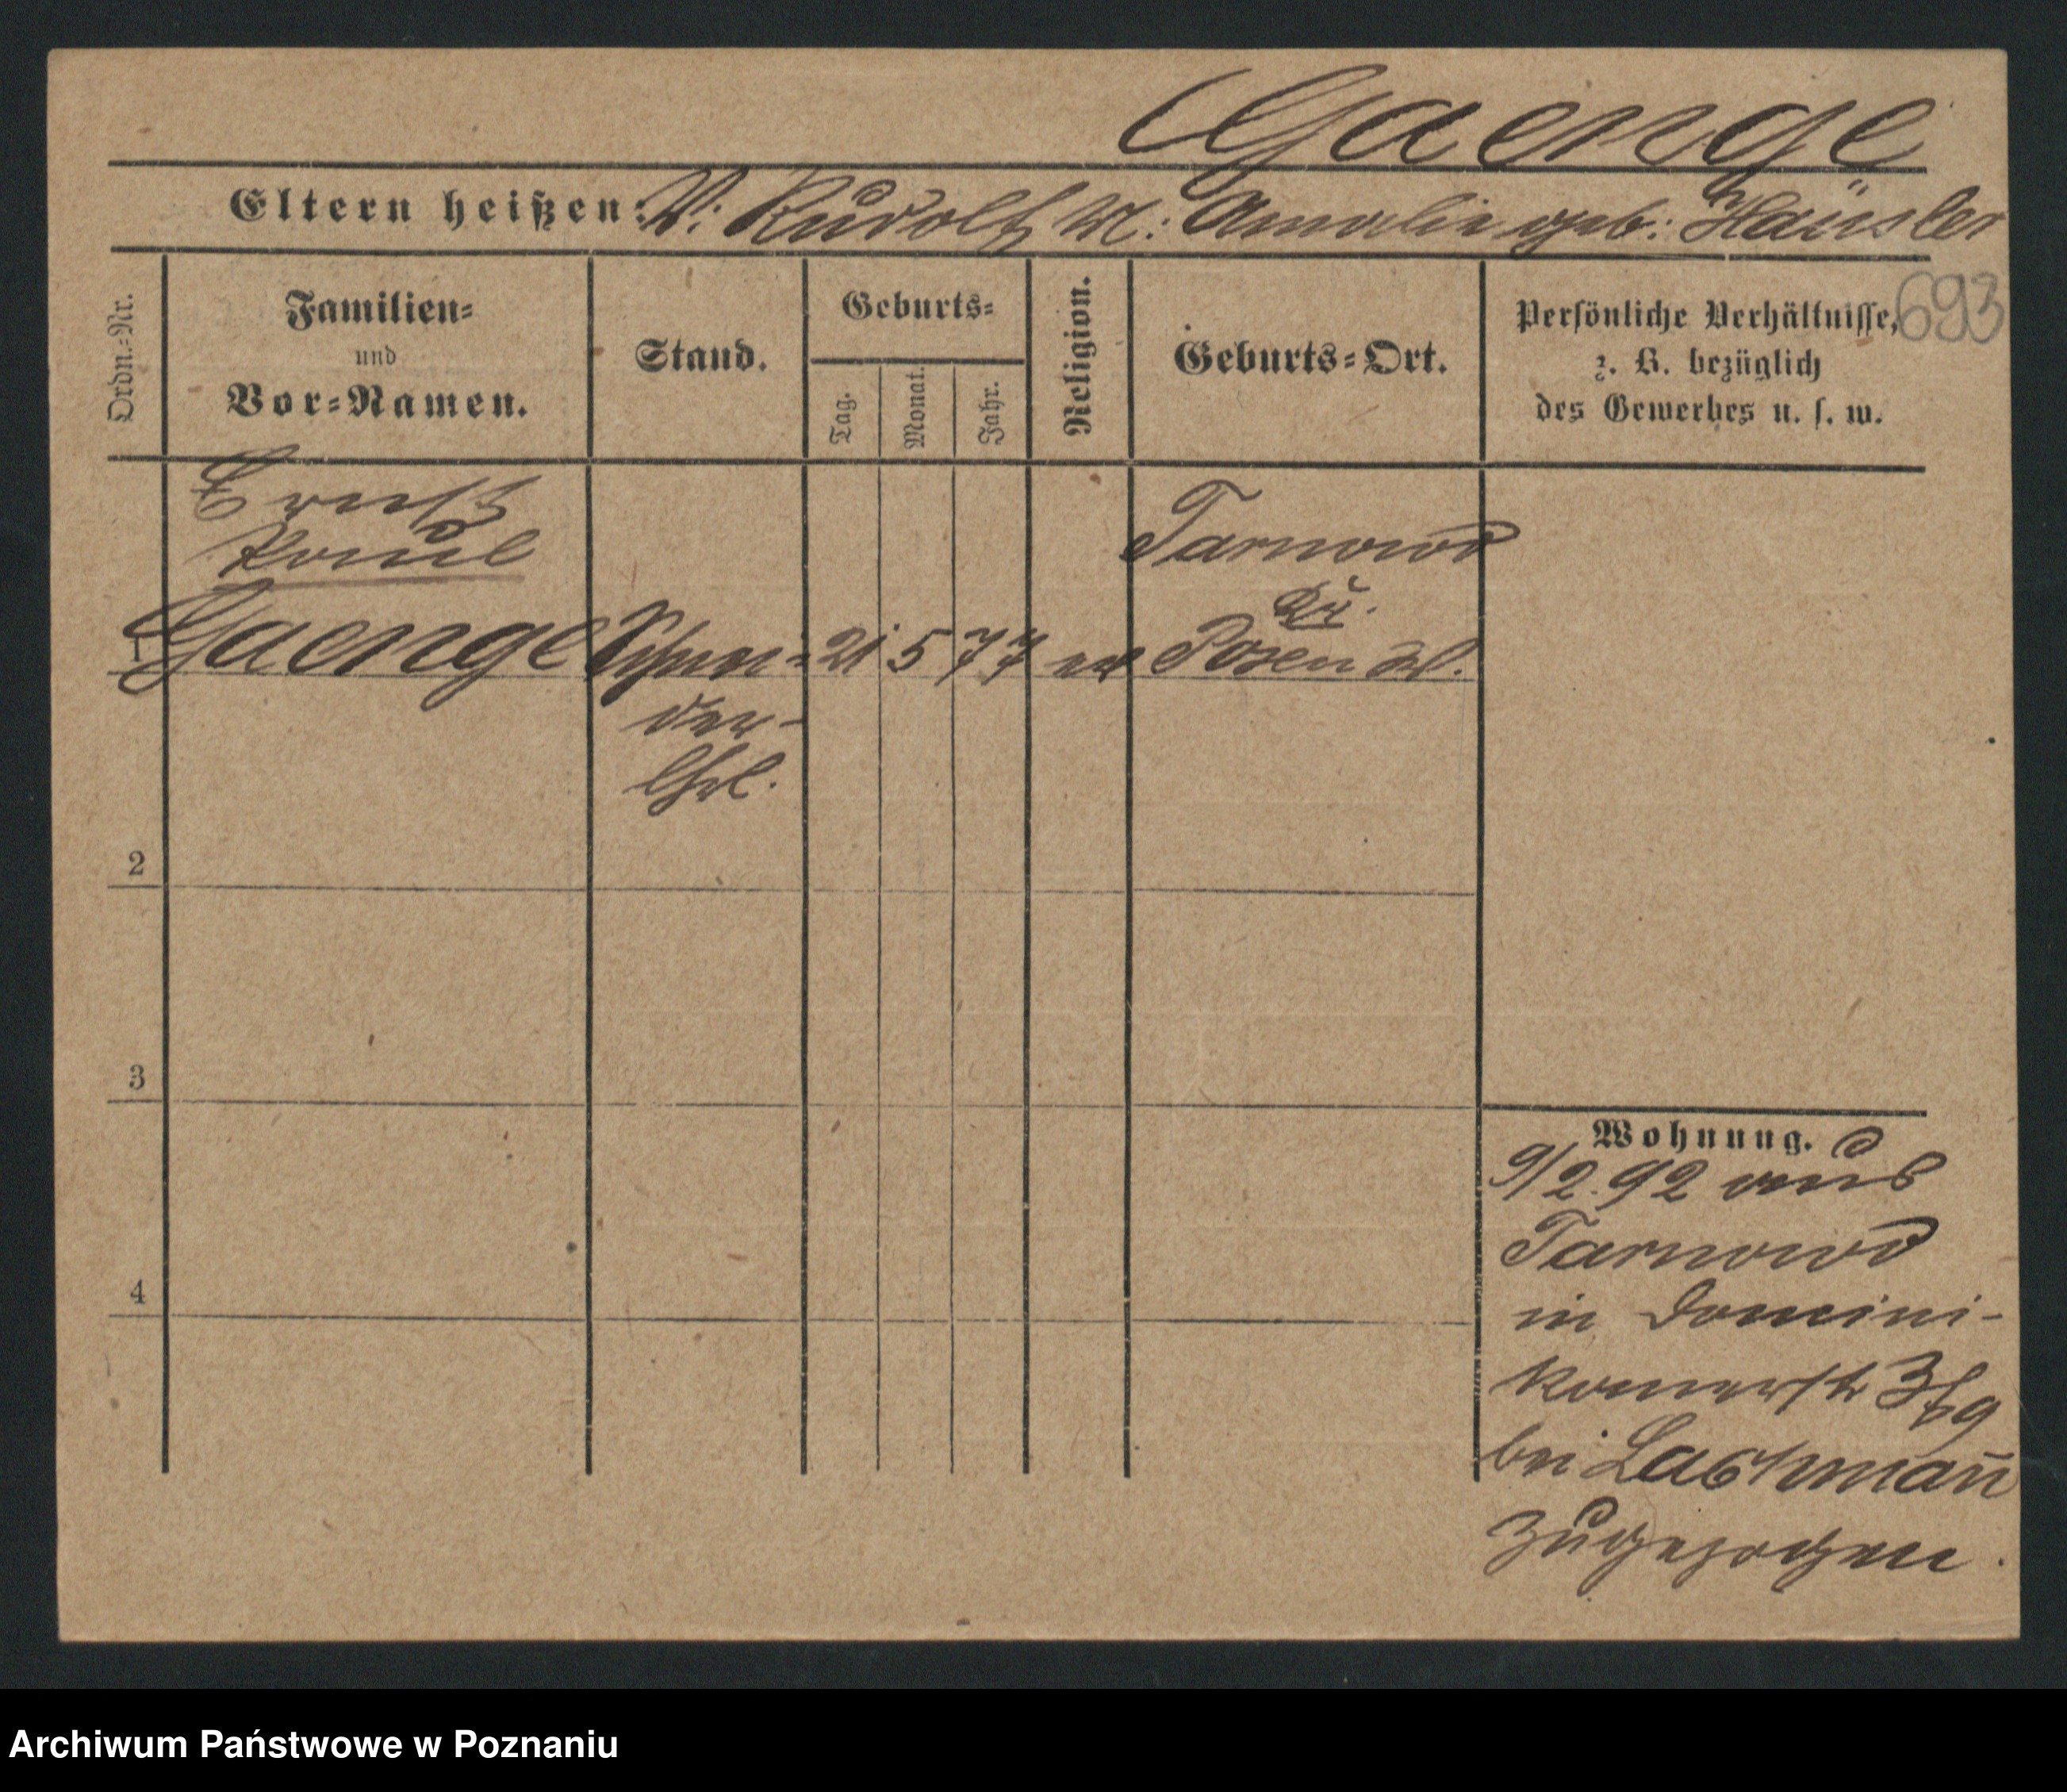 Gaenge
Eltern heißen: V: Rudolf M: Amalie geb: Häusler
693
Ordn.-Nr.
Familien-
und
Vor-Namen.
Stand.
Geburts-
Tag.
Monat.
Jahr.
Religion.
Geburts-Ort.
Persönliche Verhältnisse,
z. B. bezüglich
des Gewerbes u. s. w.
Ernst
Paul
Tarnowo
Kr.
1 Gaenge Schnei- 21 5 77 ev Posen W.
der-
lhrl.
2
3
4
Wohnung.
9/2. 92 aus
Tarnowo
in Domini-
kanerstr
bei Lachmann
zugezogen.
Archiwum Państwowe w Poznaniu